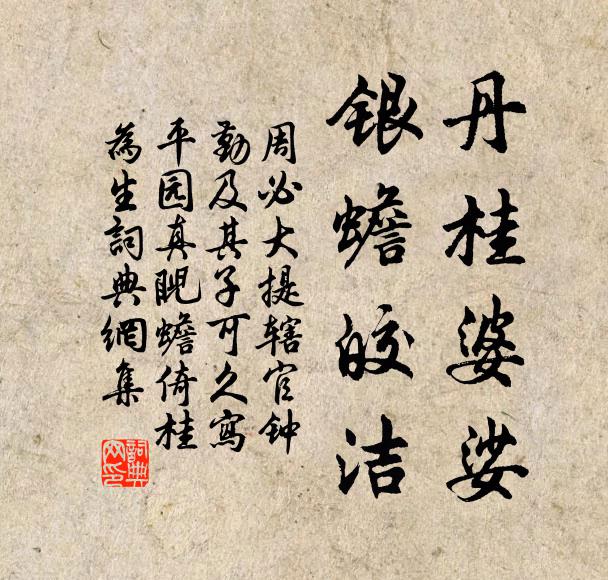 丹桂婆娑
银蟾皎洁
周必大提辖官钟
勤及其子可久写
平园真貌蟾倚桂
为生词典網集
詞典
网印